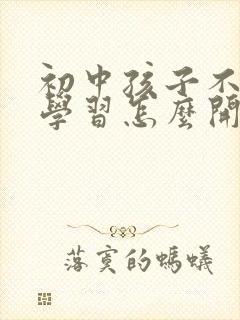 初中孩子不
學習怎麼開
落寞的螞蟻